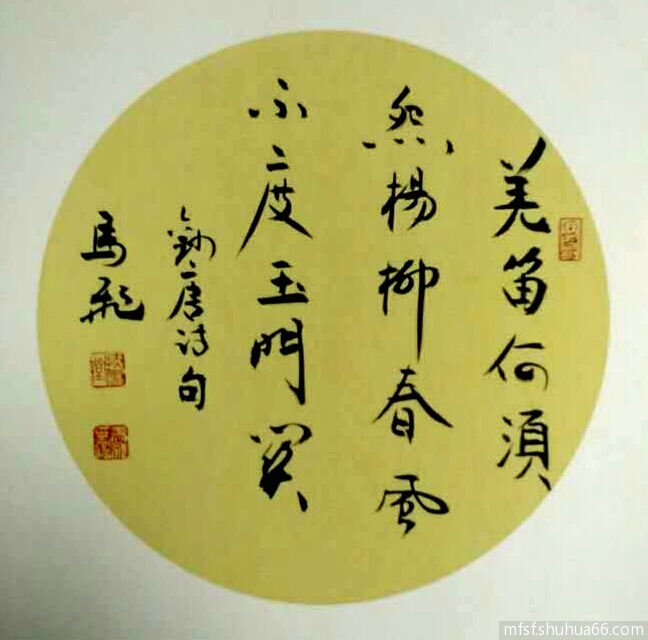 羌笛何須
怨楊柳春風
不度玉門關
錄唐诗句
馬飛
mfsfshuhua66.com